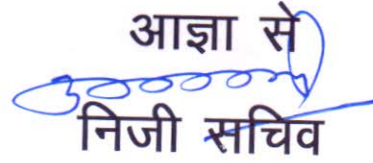 आज्ञा से
निजी सचिव